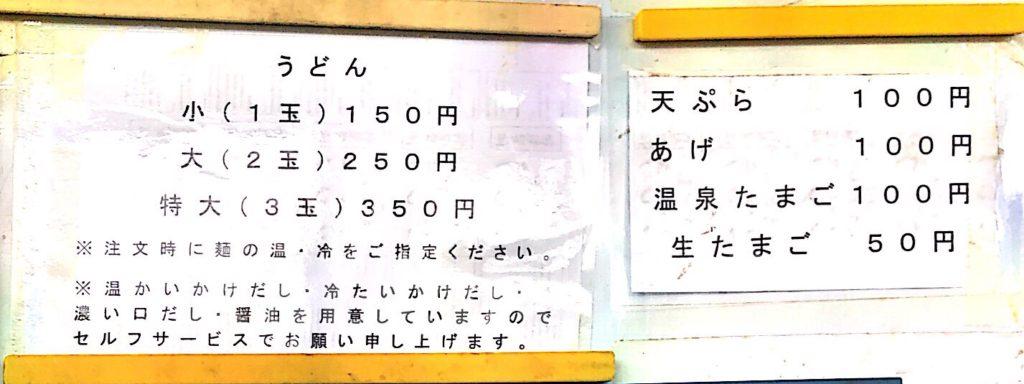 うどん
小(1玉)150円
大(2玉)250円
特大(3玉)350円
※注文時に麺の温・冷をご指定ください。
※温かいかけだし・冷たいかけだし・
濃い口だし・醤油を用意していますので
セルフサービスでお願い申し上げます。
天ぷら 100円
あげ 100円
温泉たまご100円
生たまご 50円